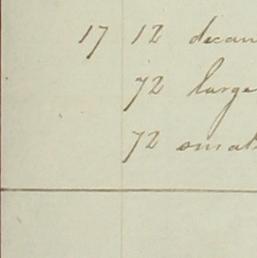 17 12 decan
72 large
72 smal